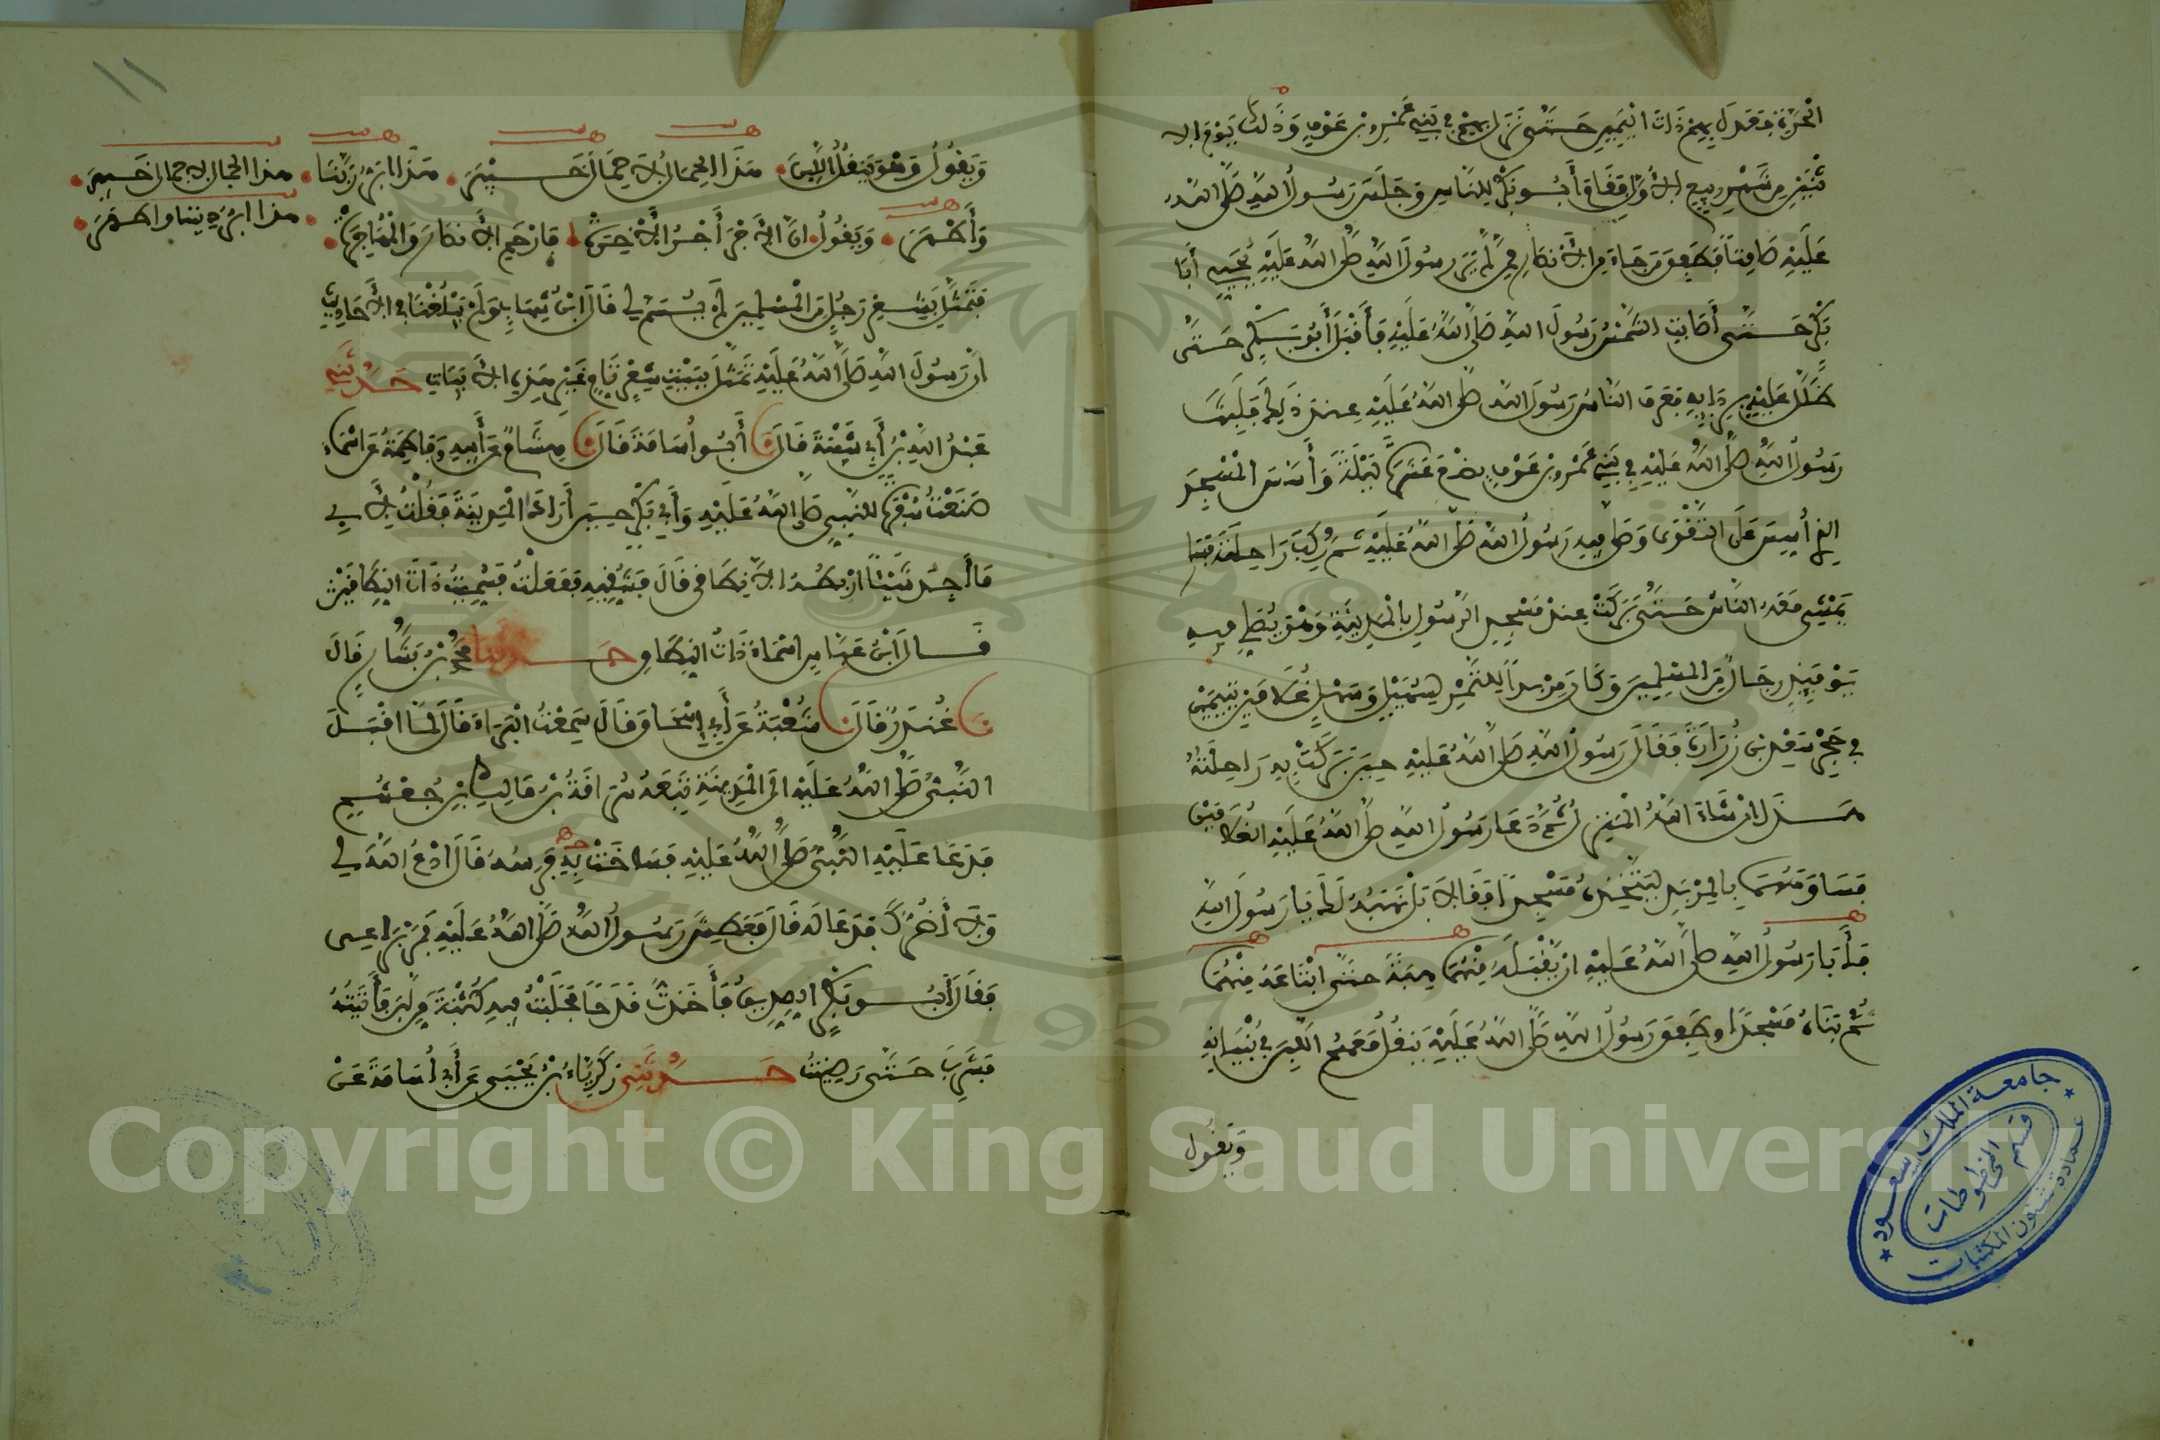 الحرة فعدل بهم ذات اليمين حتى نزل بهم في بني عمرو بن عوف وذلك يوم الا
ثنين من شهر ربيع الأول فقام أبو بكر للناس وجلس رسول الله صلى الله
عليه صامتا فطفق من جاء من الأنصار ممن لم ير رسول الله صلى الله عليه يحيي أبا
بكر حتى أصابت الشمس رسول الله صلى الله عليه فأقبل أبو بكر حتى
ظلل عليه بردايه فعرف الناس رسول الله صلى الله عليه عند ذلك فلبث
رسول الله صلى الله عليه في بني عمرو بن عوف بضع عشرة ليلة وأسس المسجد
الذي أسس على التقوى وصلى فيه رسول الله صلى الله عليه ثم ركب راحلته فسار
يمشي معه الناس حتى بركت عند مسجد الرسول بالمدينة وهو يصلي فيه
يوميذ رجال من المسلمين وكان مربدا للتمر لسهيل وسهل غلامين يتيمين
في حجر سعد بن زرارة فقال رسول الله صلى الله عليه حين بركت به راحلته
هذا ان شاء الله المنزل ثم دعا رسول الله صلى الله عليه الغلامين
فساومهما بالمربد ليتخذه مسجدا فقالا بل نهبه لك يا رسول الله
فأبا رسول الله صلى الله عليه ان يقبله منهما هبة حتى ابتاعه منهما
ثم بناه مسجدا وطفق رسول الله صلى الله عليه ينقل معهم اللبن في بنيانه
ويقول
١١
ويقول وهو ينقل اللبن هذا الحمال لا حمال خيبر هذا ابر ربنا
وأطهر ويقول ان الأجر أجر الآخرة فارحم الأنصار والمهاجرة
هذا الحمال لا حمال خيبر
هذا ابر ربنا واطهر
فتمثل بشعر رجل من المسلمين لم يسم لي قال ابن شهاب ولم يبلغنا في الأحاديث
ان رسول الله صلى الله عليه تمثل ببيت شعر تام غير هذه الأبيات حدثني
عبد الله بن أبي شيبة قال نا أبو أسامة قال نا هشام عن أبيه وفاطمة عن اسماء
صنعت سفرة للنبي صلى الله عليه وأبي بكر حين أرادا المدينة فقلت لأبي
ما أجد شيئا اربطه الا نطاقي قال فشقيه ففعلت فسميت ذات النطاقين
قال ابن عباس اسماء ذات النطاق حدثنا محمد بن بشار قال
نا غندر قال نا شعبة عن أبي إسحاق قال سمعت البراء قال لما اقبل
النبي صلى الله عليه الى المدينة تبعه سراقة بن مالك بن جعشم
فدعا عليه النبي صلى الله عليه فساخت به فرسه قال ادع الله لي
ولا أضرك فدعا له قال فعطش رسول الله صلى الله عليه فمر براعى
فقال أبو بكر الصديق فأخذت قدحا فحلبت فيه كثبة من لبن فأتيته
فشرب حتى رضيت حدثني زكرياء بن يحيى عن أبي أسامة عن
جامعة الملك سعود
قسم المخطوطات
عمادة شئون المكتبات
1957
Copyright © King Saud University